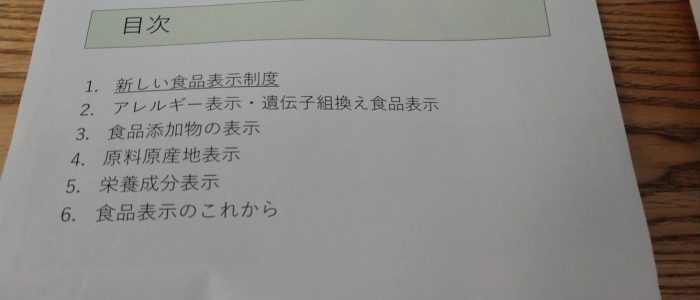 目次
1. 新しい食品表示制度
2. アレルギー表示・遺伝子組換え食品表示
3. 食品添加物の表示
4. 原料原産地表示
5. 栄養成分表示
6. 食品表示のこれから